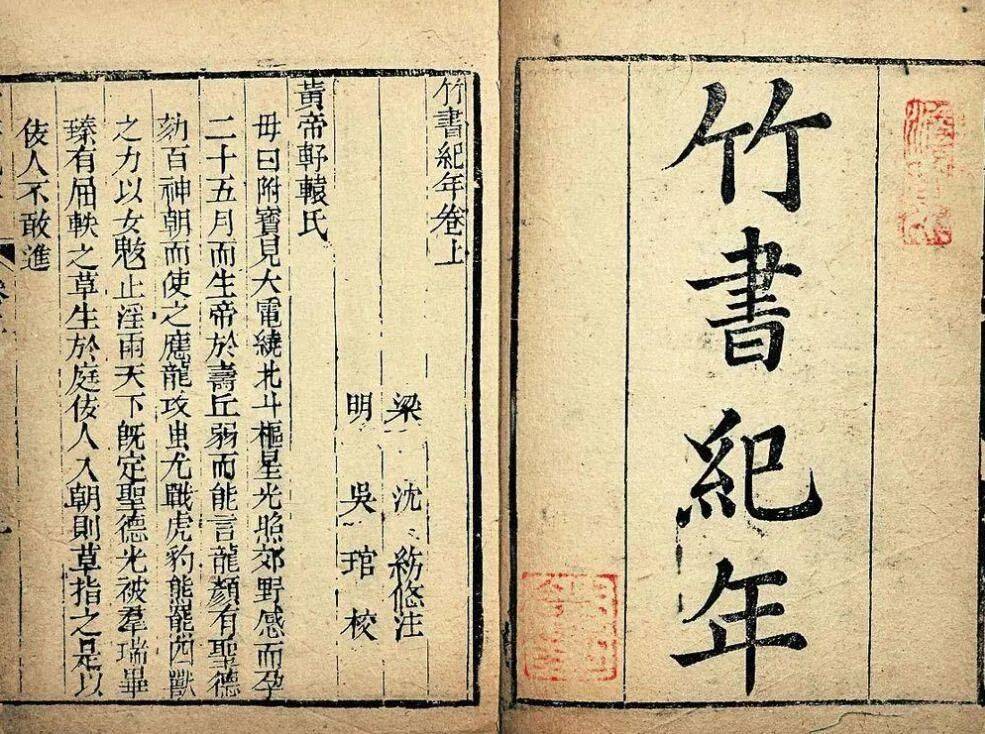 竹書紀年
竹書紀年卷上
梁 沈 注
明 吳 琯 校
黃帝軒轅氏
母曰附寶見大電繞北斗樞星光照郊野感而孕
二十五月而生帝於壽丘弱而能言龍顏有聖德
劾百神朝而使之應龍攻蚩尤戰虎豹熊羆四獸
之力以女魃止淫雨天下既定聖德光被羣瑞畢
臻有屈軼之草生於庭佞人入朝則草指之是以
佞人不敢進